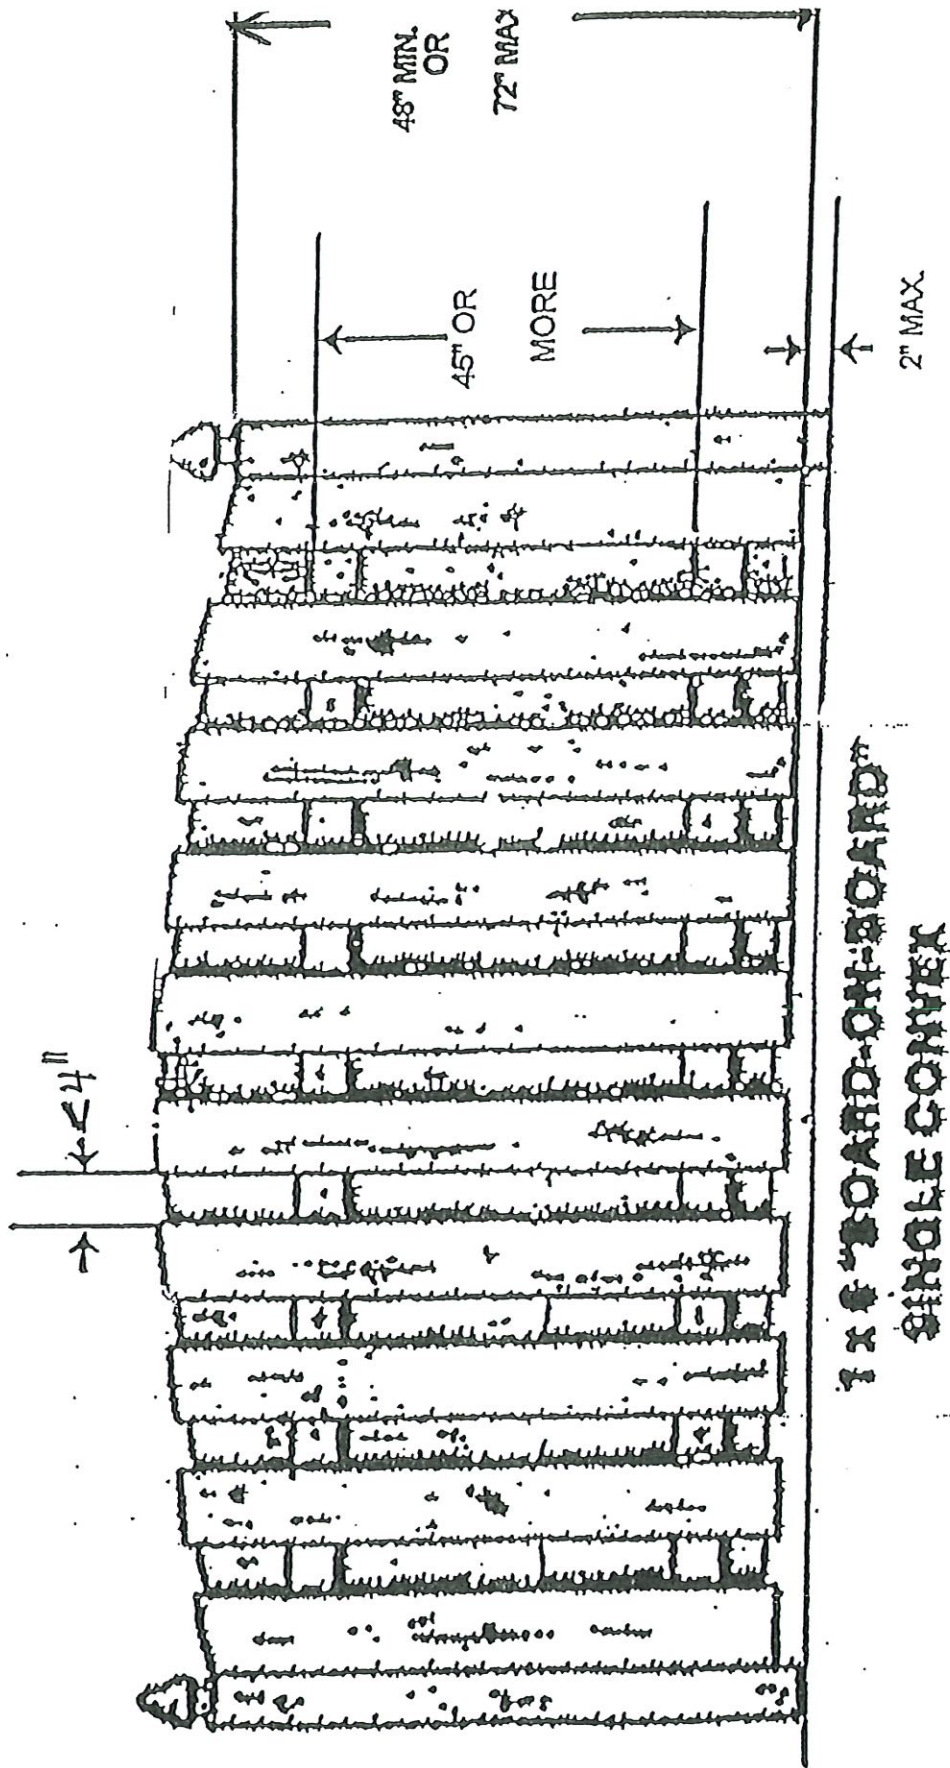 <4"
48" MIN.
OR
72" MAX
45" OR
MORE
2" MAX.
1 x 6 "BOARD-ON-BOARD"
SINGLE CONVEX